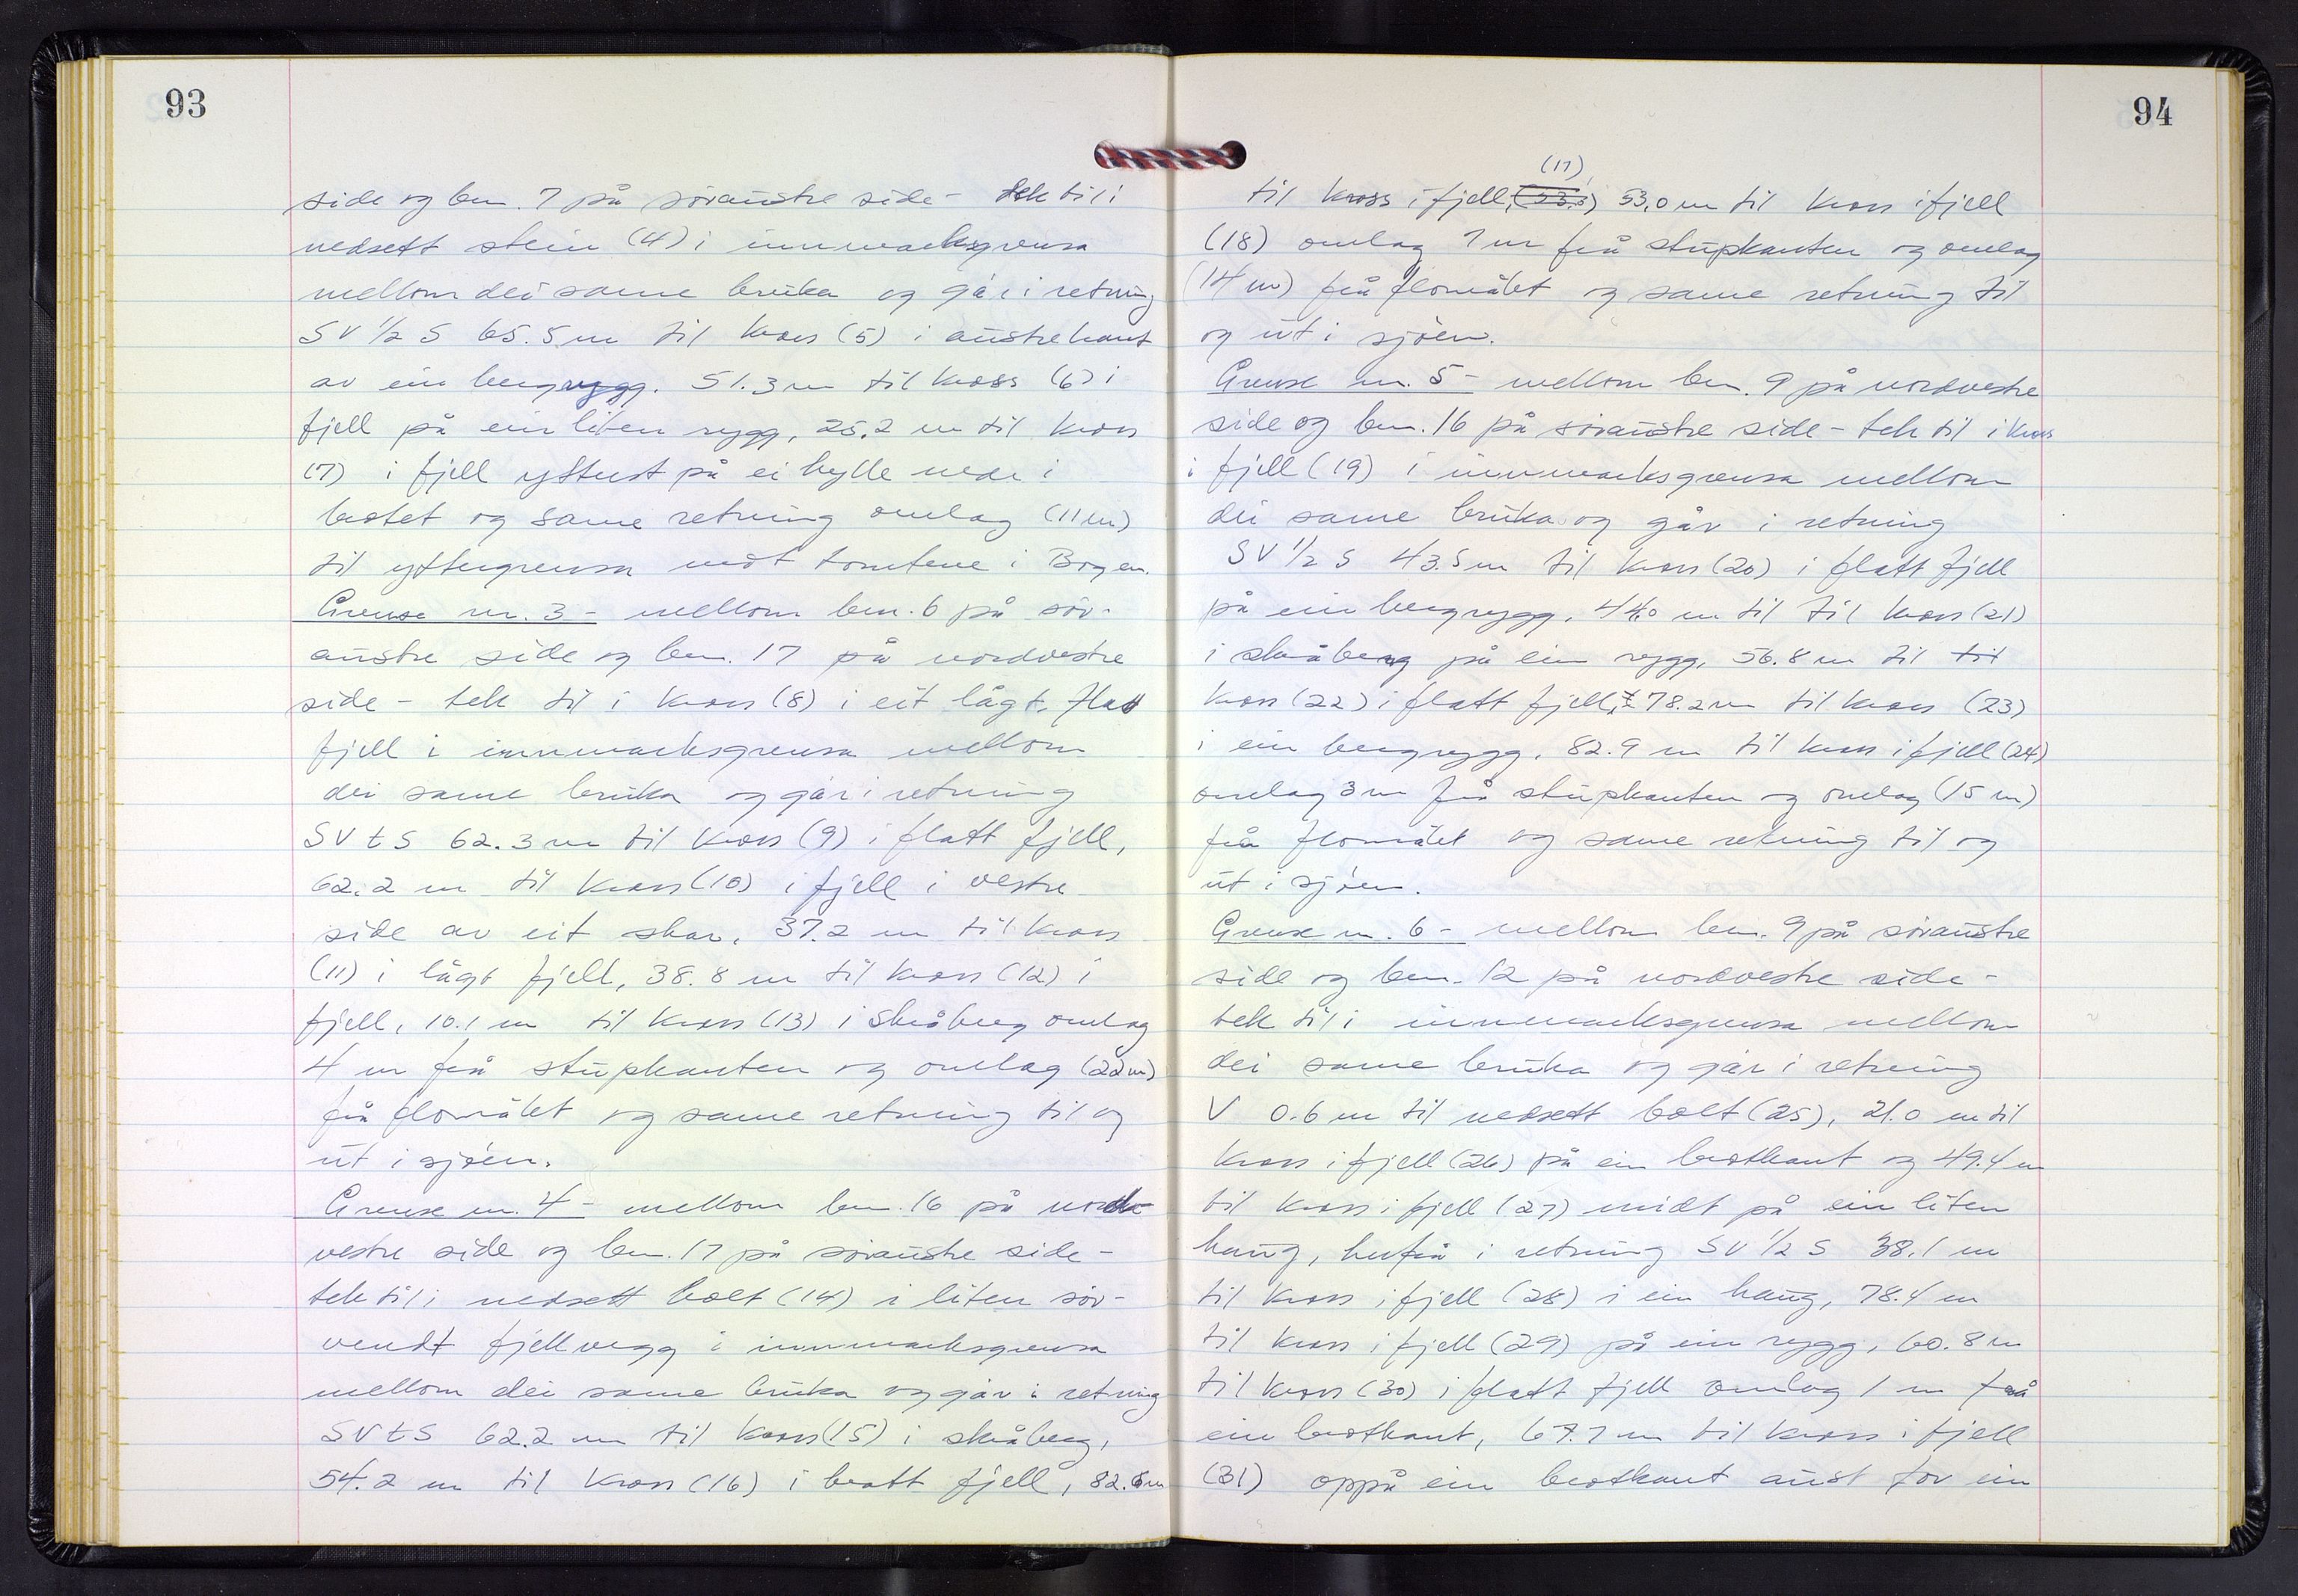 93
side og bnr. 7 på søraustre side - tek til i
nedsett stein (4) i innmarksgrensa
mellom dei same bruka og går i retning
SV 1/2 S 65.5 m til kross (5) i austre kant
av ein bergrygg. 51.3 m til kross (6) i
fjell på ein liten rygg, 25.2 m til kross
(7) i fjell ytterst på ei hylle nær i
brotet og same retning omlag (11 m)
til yttergrensa mot tomtene i Bogen.
Grense nr. 3 - mellom bnr. 6 på sør-
austre side og bnr. 17 på nordvestre
side - tek til i kross (8) i eit lågt, flatt
fjell i innmarksgrensa mellom
dei same bruka og går i retning
SV t S 62.3 m til kross (9) i flatt fjell,
62.2 m til kross (10) i fjell i vestre
side av eit skar, 37.2 m til kross
(11) i lågt fjell, 38.8 m til kross (12) i
fjell, 10.1 m til kross (13) i skråberg omlag
4 m frå stupkanten og omlag (22 m)
frå flomålet og same retning til og
ut i sjøen.
Grense nr. 4 - mellom bnr. 16 på nord-
vestre side og bnr. 17 på søraustre side -
tek til i nedsett bolt (14) i liten sør-
vendt fjellvegg i innmarksgrensa
mellom dei same bruka og går i retning
SV t S 62.2 m til kross (15) i skråberg,
54.2 m til kross (16) i bratt fjell, 82.6 m
94
(17)
til kross i fjell, 53,0 m til kross i fjell
(18) omlag 7 m frå stupkanten og omlag
(14 m) frå flomålet og same retning til
og ut i sjøen.
Grense nr. 5 - mellom bnr. 9 på nordvestre
side og bnr. 16 på søraustre side - tek til i kross
i fjell (19) i innmarksgrensa mellom
dei same bruka og går i retning
SV 1/2 S 43.5 m til kross (20) i flatt fjell
på ein bergrygg, 44.0 m til til kross (21)
i skråberg på ein rygg, 56.8 m til til
kross (22) i flatt fjell, 78.2 m til kross (23)
i ein bergrygg, 82.9 m til kross i fjell (24)
omlag 3 m frå stupkanten og omlag (15 m)
frå flomålet og same retning til og
ut i sjøen.
Grense nr. 6 - mellom bnr. 9 på søraustre
side og bnr. 12 på nordvestre side -
tek til i innmarksgrensa mellom
dei same bruka og går i retning
V 0.6 m til nedsett bolt (25), 21.0 m til
kross i fjell (26) på ein brotkant og 49.4 m
til kross i fjell (27) midt på ein liten
haug, herfrå i retning SV 1/2 S 38.1 m
til kross i fjell (28) i ein haug, 78.4 m
til kross i fjell (29) på ein rygg, 60.8 m
til kross (30) i flatt fjell omlag 1 m frå
ein brotkant, 67.7 m til kross i fjell
(31) oppå ein brotkant aust for ein